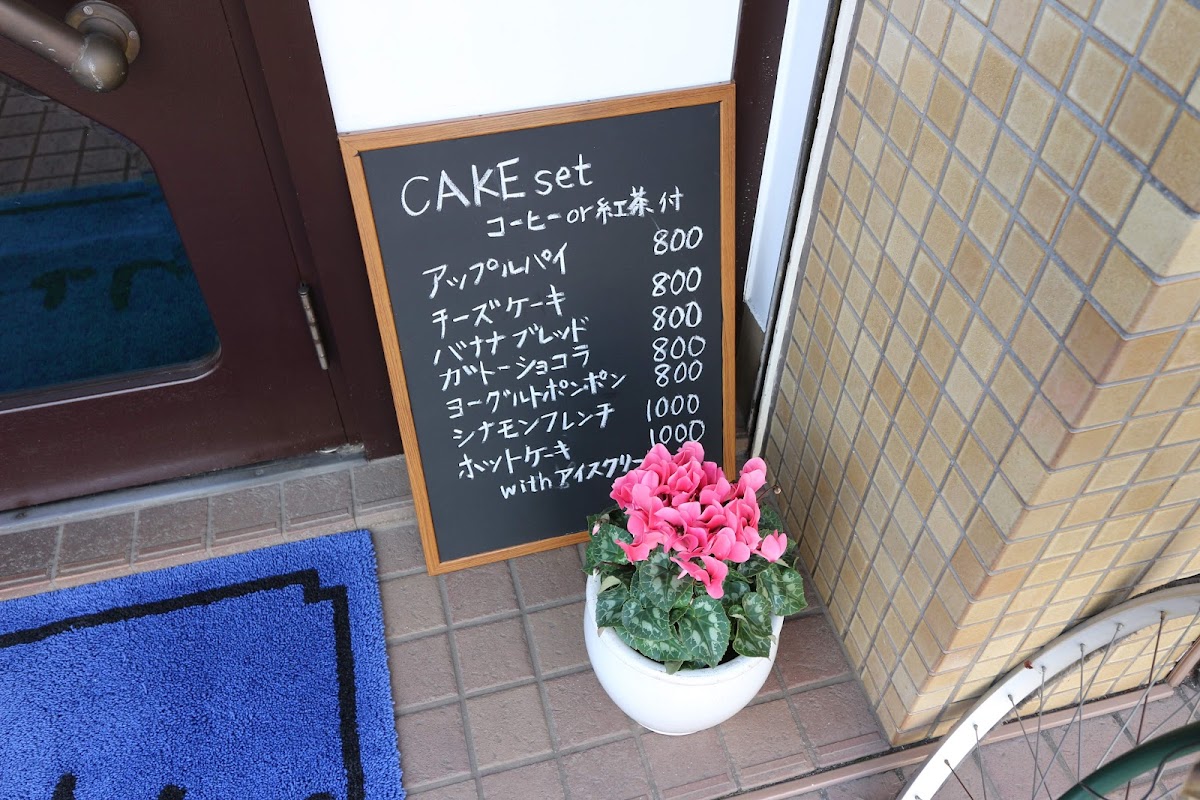 CAKE set
コーヒー or 紅茶 付
アップルパイ 800
チーズケーキ 800
バナナブレッド 800
ガトーショコラ 800
ヨーグルトポンポン 800
シナモンフレンチ 1000
ホットケーキ 1000
with アイスクリー